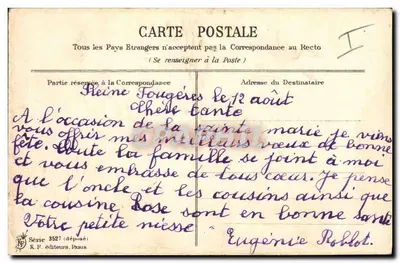 CARTE POSTALE
Tous les Pays Etrangers n'acceptent pas la Correspondance au Recto
(Se renseigner à la Poste)
Partie réservée à la Correspondance
Adresse du Destinataire
Pleine Fougères le 12 août
Chère tante
A l'occasion de la sainte marie je viens
vous offrir mes meilleurs vœux de bonne
fête. Toute la famille se joint à moi
et vous embrasse de tous cœur. Je pense
que l'oncle et les cousins ainsi que
la cousine Rose sont en bonne santé
Votre petite niesse
Eugénie Roblot.
Série 3527 (déposé)
S. F. éditeurs, Paris